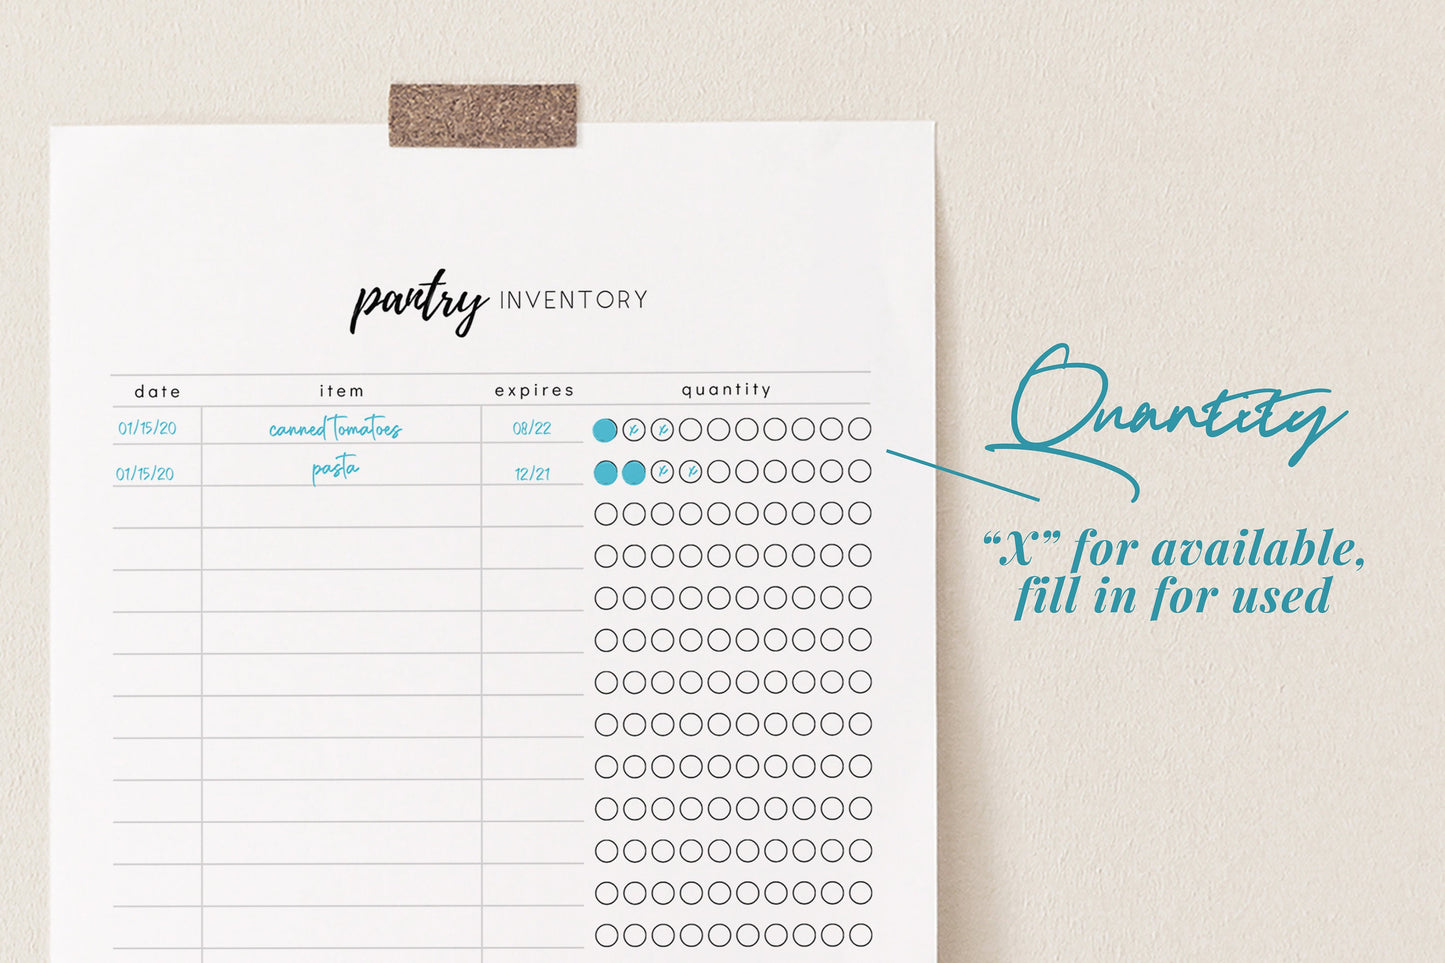 pantry INVENTORY
date item expires quantity
01/15/20 canned tomatoes 08/22 x x
01/15/20 pasta 12/21 x x
Quantity
“X” for available,
fill in for used